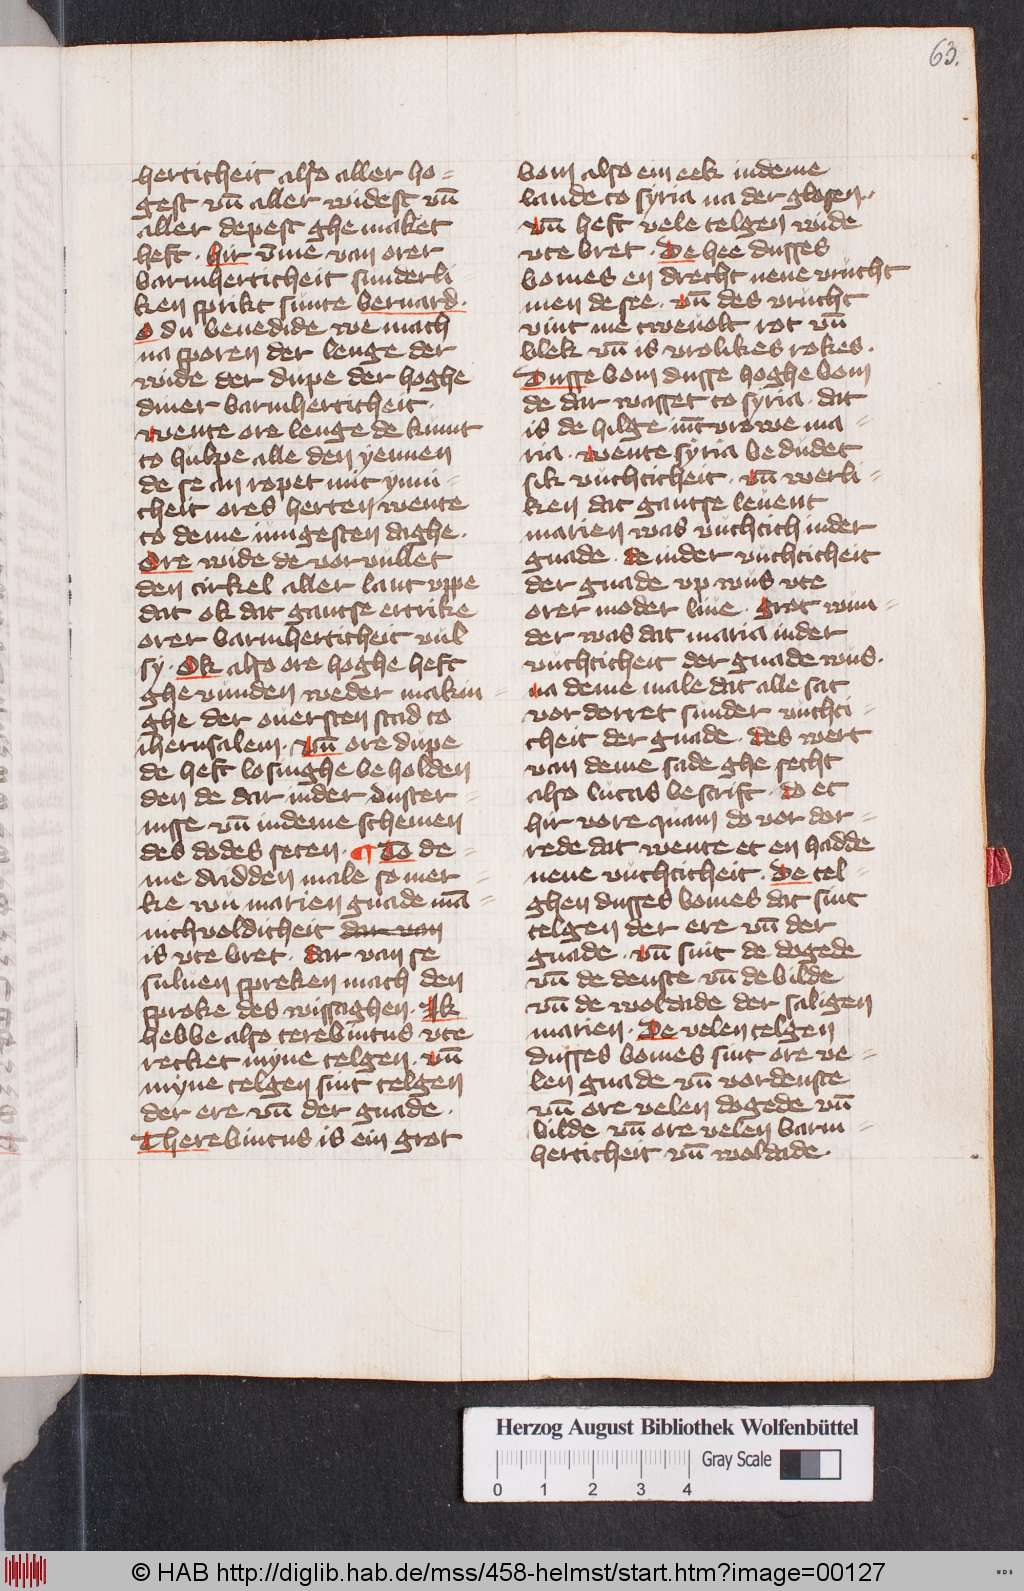 63.
herticheit also aller ho=
gest vn̄ aller widest vn̄
aller depest ghe maket
heft . hir v̄me van orer
barmherticheit sunderli=
ken sprikt sunte bernard .
O du benedide we mach
na sporen der lenge der
wide der dupe der hoghe
diner barmherticheit .
wente ore lenge de kumt
to hulpe alle den yennen
de se an ropet mit ynni=
cheit ores herten wente
to deme iungesten daghe .
Ore wide de vor vullet
den cirkel aller lant vppe
dat ok dat gantse ertrike
orer barmherticheit vul
sy . Ok also ore hoghe heft
ghe vunden weder makin=
ghe der ouersten stad to
iherusalem . vn̄ ore dupe
de heft losinghe be holden
den de dar inder duster=
nisse vn̄ indeme schemen
des dodes seten . ¶ To de=
me dridden male so mer=
ke wu marien gnade mā=
nichvoldicheit dar van
is vte bret . dar van se
suluen spreken mach den
sproke des wissaghen . Ik
hebbe also terebintus vte
recket myne telgen . vn̄
myne telgen sint telgen
der ere vn̄ der gnade .
Therebintus is ein grot
bom also ein eek indeme
lande to syria na der glosen .
vn̄ heft vele telgen wide
vte bret . De hee dusses
bomes en drecht nene vrucht
men de see . vn̄ des vrucht
vint me twevolt rot vn̄
blek vn̄ is vrolikes rokes .
Dusse bom dusse hoghe bom
de dar wasset to syria . dat
is de hilge iūcvrowe ma=
ria . wente syria be dudet
sik vuchticheit . vn̄ werli=
ken dat gantse leuent
marien was vuchtich inder
gnade . de inder vuchticheit
der gnade vp wus vte
orer moder liue . grot wun=
der was dat maria inder
vuchticheit der gnade wus .
na deme male dat alle sat
vor dorret sunder vuchti=
cheit der gnade . des wert
van deme sade ghe secht
also lucas bescrift . do et
hir vore quam do vor dor=
rede dat wente et en hadde
nene vuchticheit . De tel=
ghen dusses bomes dat sint
telgen der ere vn̄ der
gnade . vn̄ sint de dogede
vn̄ de denste vn̄ de bilde
vn̄ de woldade der saligen
marien . De velen telgen
dusses bomes sint ore ve=
len gnade vn̄ vordenste
vn̄ ore velen dogede vn̄
bilde vn̄ ore velen barm=
herticheit vn̄ woldade .
Herzog August Bibliothek Wolfenbüttel
Gray Scale
0 1 2 3 4
© HAB http://diglib.hab.de/mss/458-helmst/start.htm?image=00127